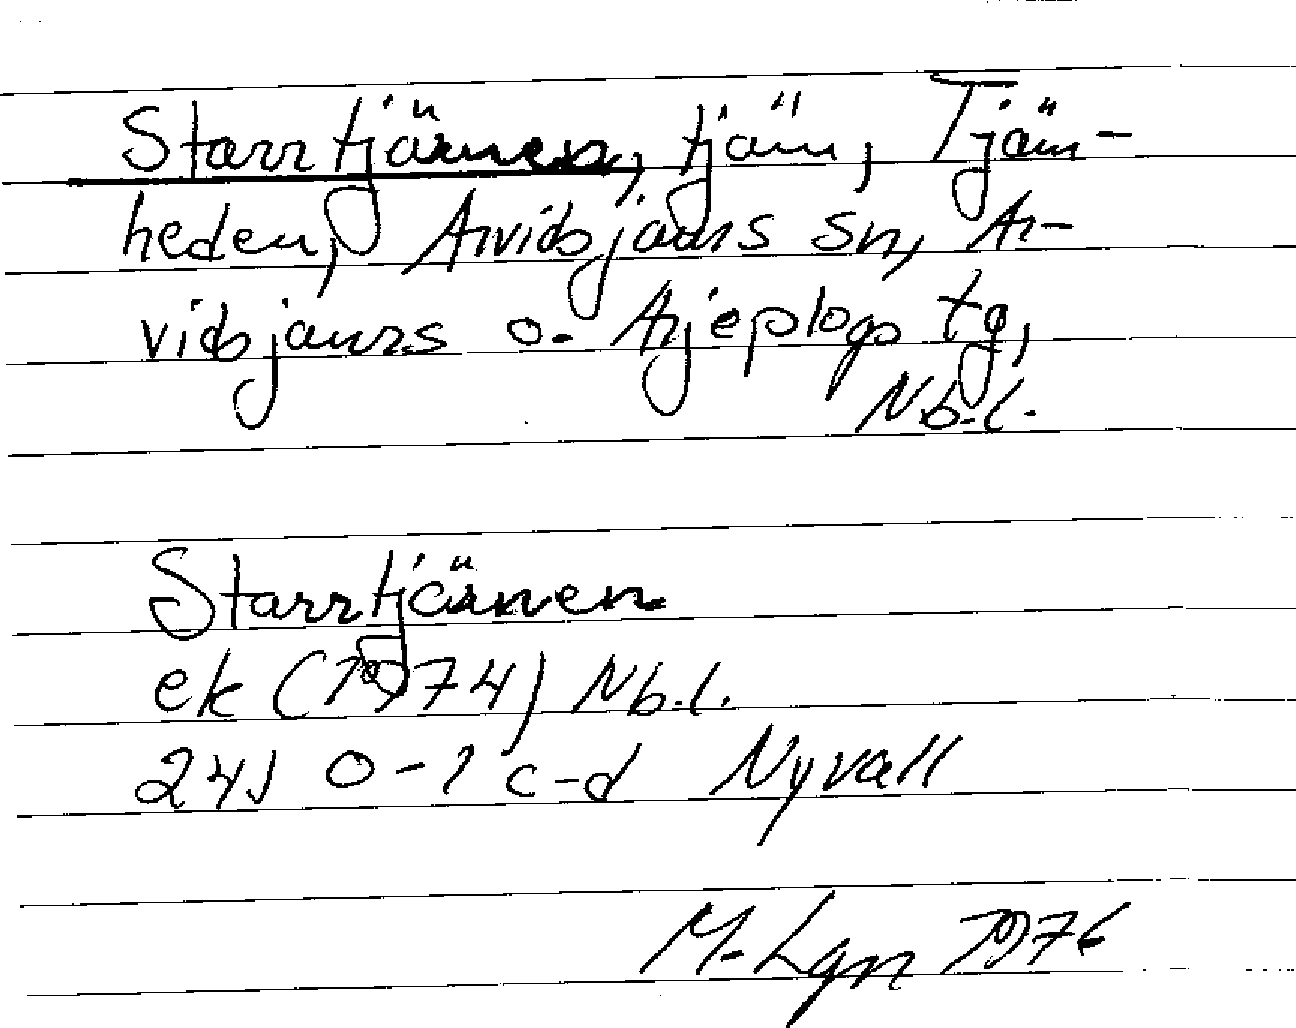 Starrtjärnen, tjärn, Tjärn-
heden, Arvidsjaurs sn, Ar-
vidsjaurs o. Arjeplogs tg,
Nb.l.
Starrtjärnen
ek (1974) Nb.l.
24J 0-1 c-d Nyvall
M. Lgn 1976